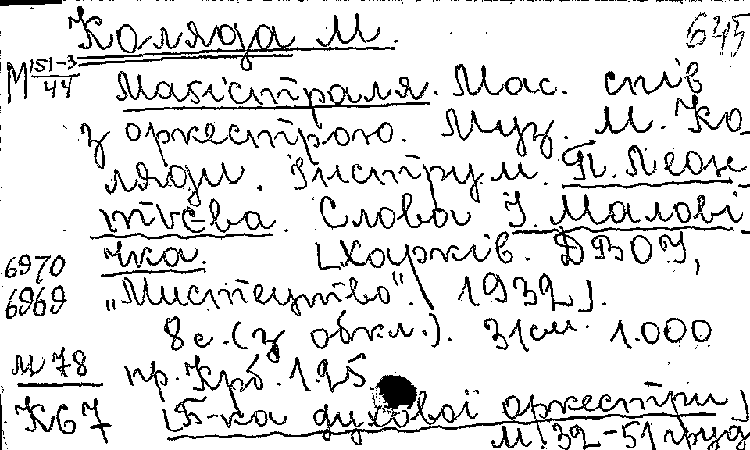 Коляда М. 645
М 151-3/44 Магістраля. Мас. спів
з оркестрою. Муз. М. Ко
ляди. Інструм. П. Леон
тьєва. Слова І. Малові
чка. [Харків. ДВОУ,
6970
6969 „Мистецтво". 1932].
8с. (з обкл.). 31см. 1.000
М 78 пр. Крб. 1.25
К67 [Б-ка духової оркестри]
М! 32-51 груд